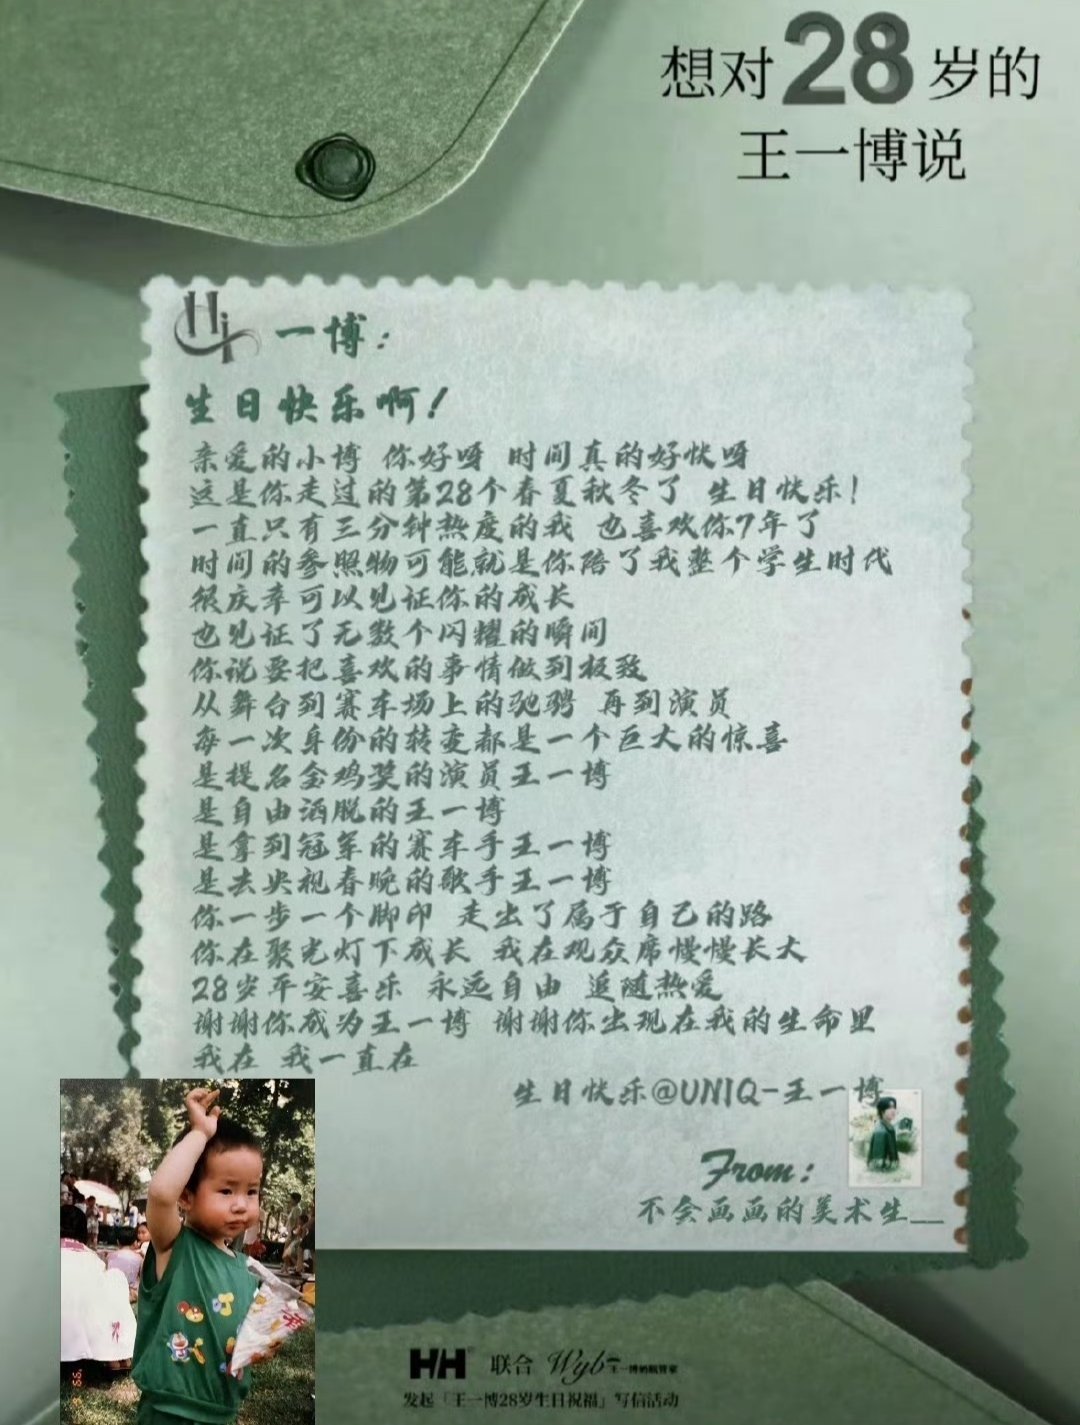 想对28岁的
王一博说
Hi 一博：
生日快乐啊！
亲爱的小博 你好呀 时间真的好快呀
这是你走过的第28个春夏秋冬了 生日快乐！
一直只有三分钟热度的我 也喜欢你7年了
时间的参照物可能就是你陪了我整个学生时代
很庆幸可以见证你的成长
也见证了无数个闪耀的瞬间
你说要把喜欢的事情做到极致
从舞台到赛车场上的驰骋 再到演员
每一次身份的转变都是一个巨大的惊喜
是提名金鸡奖的演员王一博
是自由洒脱的王一博
是拿到冠军的赛车手王一博
是去央视春晚的歌手王一博
你一步一个脚印 走出了属于自己的路
你在聚光灯下成长 我在观众席慢慢长大
28岁平安喜乐 永远自由 追随热爱
谢谢你成为王一博 谢谢你出现在我的生命里
我在 我一直在
生日快乐@UNIQ-王一博
From：
不会画画的美术生__
HH 联合 Wyb 王一博奶瓶管家
发起「王一博28岁生日祝福」写信活动